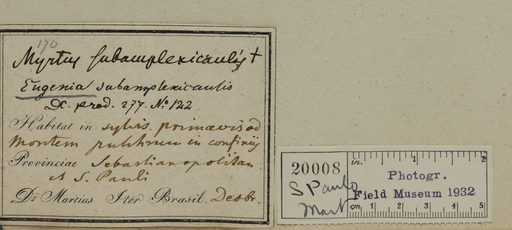 170
Myrtus subamplexicaulis †
Eugenia subamplexicaulis
DC. prod. 277. No. 122.
Habitat in sylvis primaevis ad
Montem pulchrum in confiniis
Provinciae Sebastianopolitan
et S. Pauli
Dr. Martius Iter Brasil. Decbr.
20008
S Paulo
Mart
in. 1 2
Photogr.
Field Museum 1932
cm. 1 2 3 4 5